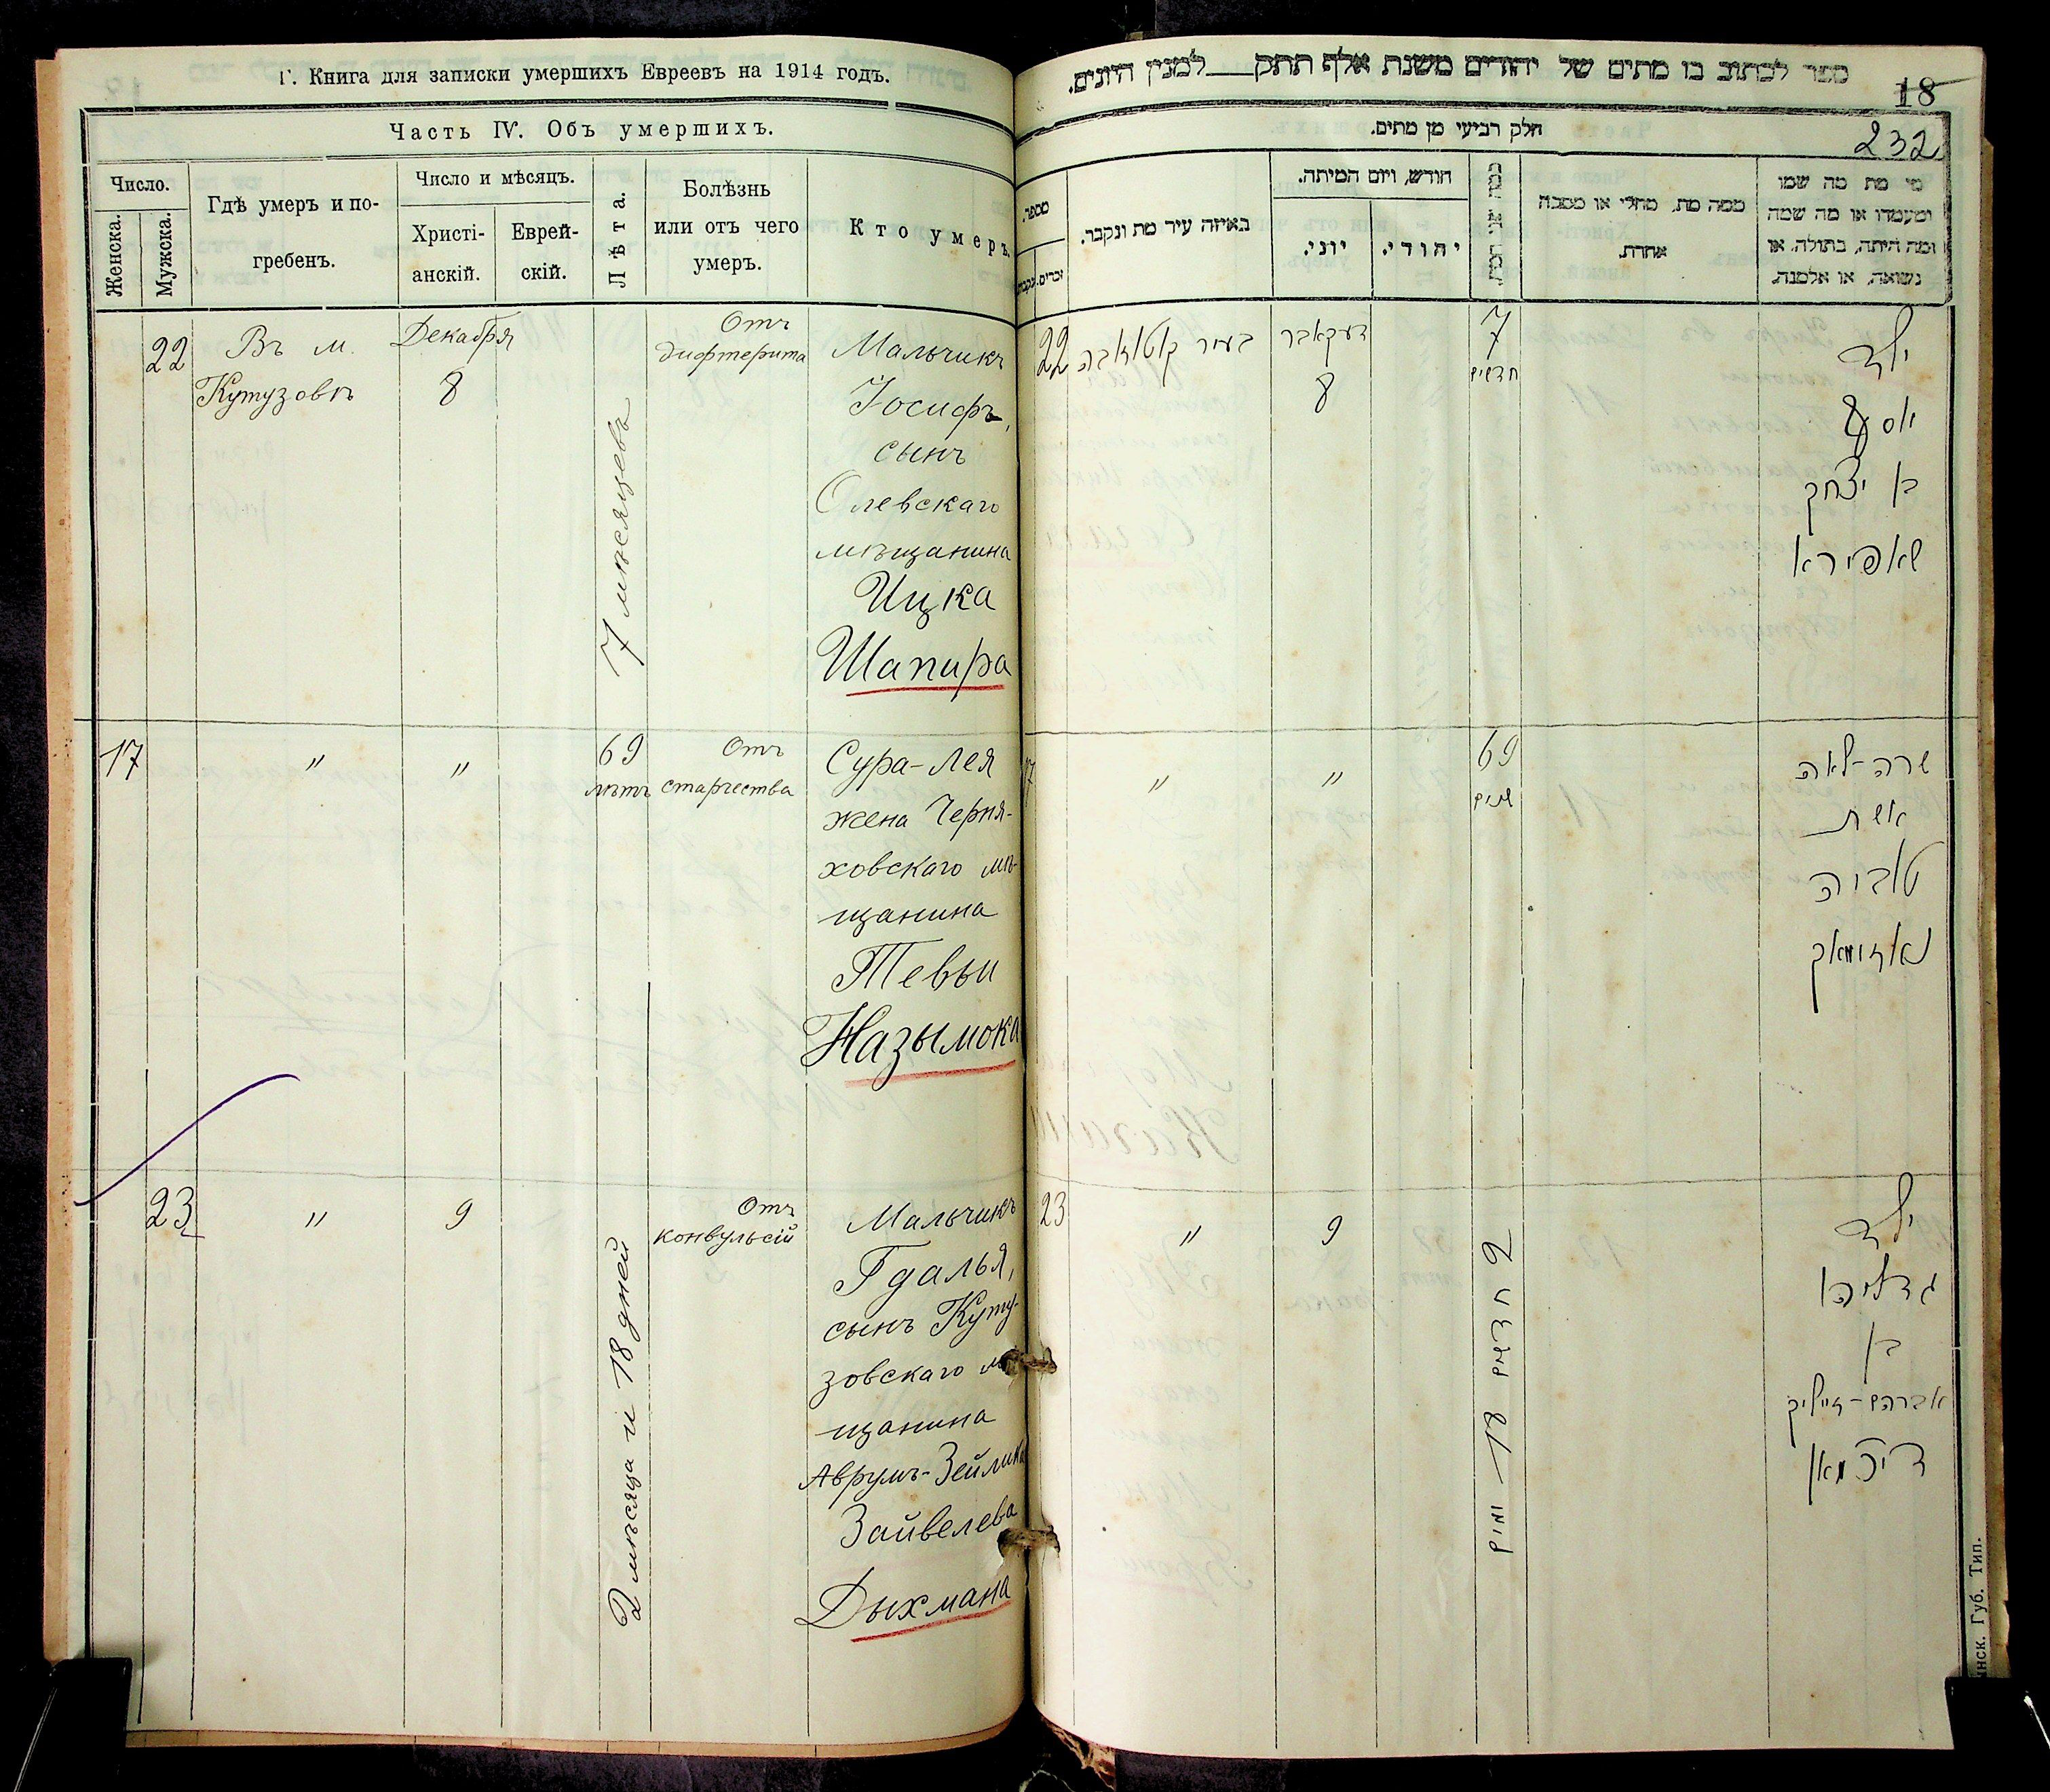 Г. Книга для записки умершихъ Евреевъ на 1914 годъ.
Часть IV. Объ умершихъ.
Число.
Женска.
Мужска.
Гдѣ умеръ и по-
гребенъ.
Число и мѣсяцъ.
Христі-
анскій.
Еврей-
скій.
Лѣта.
Болѣзнь
или отъ чего
умеръ.
Кто умеръ.
22
Въ м.
Кутузовѣ
Декабря
8
7 мѣсяцевъ
Отъ
дифтерита
Мальчикъ
Іосифъ,
сынъ
Олевскаго
мѣщанина
Ицка
Шапира
17
"
"
69
лѣтъ
Отъ
старчества
Сура-Лея
жена Черня-
ховскаго мѣ-
щанина
Тевьи
Назымока
23
"
9
2 мѣсяца и 18 дней
Отъ
конвульсій
Мальчикъ
Гдалья,
сынъ Куту-
зовскаго мѣ-
щанина
Аврумъ-Зейлика
Зайвелева
Дыхмана
ספר לכתוב בו מתים של יהודים משנת אלף תתק למנין היונים.
18
חלק רביעי מן מתים.
232
מספר.
זכרים.
נקבות
באיזה עיר מת ונקבר.
חודש, ויום המיתה.
יוני.
יהודי.
ממה מת, מחלי או מסבה
אחרת.
מי מת מה שמו
ומעמדו או מה שמה
ומה היתה, בתולה, או
נשואה, או אלמנה.
22
בעיר קוטוזאבה
דעקאבר
8
7
חדשים
ילד
יוסף
בן יצחק
שאפירא
17
"
"
69
שנים
שרה-לאה
אשת
טוביה
נאזימאק
23
"
9
2 חדשים 18 ימים
ילד
גדליהו
בן
אברהם-זייליק
דיכמאן
Губ. Тип.